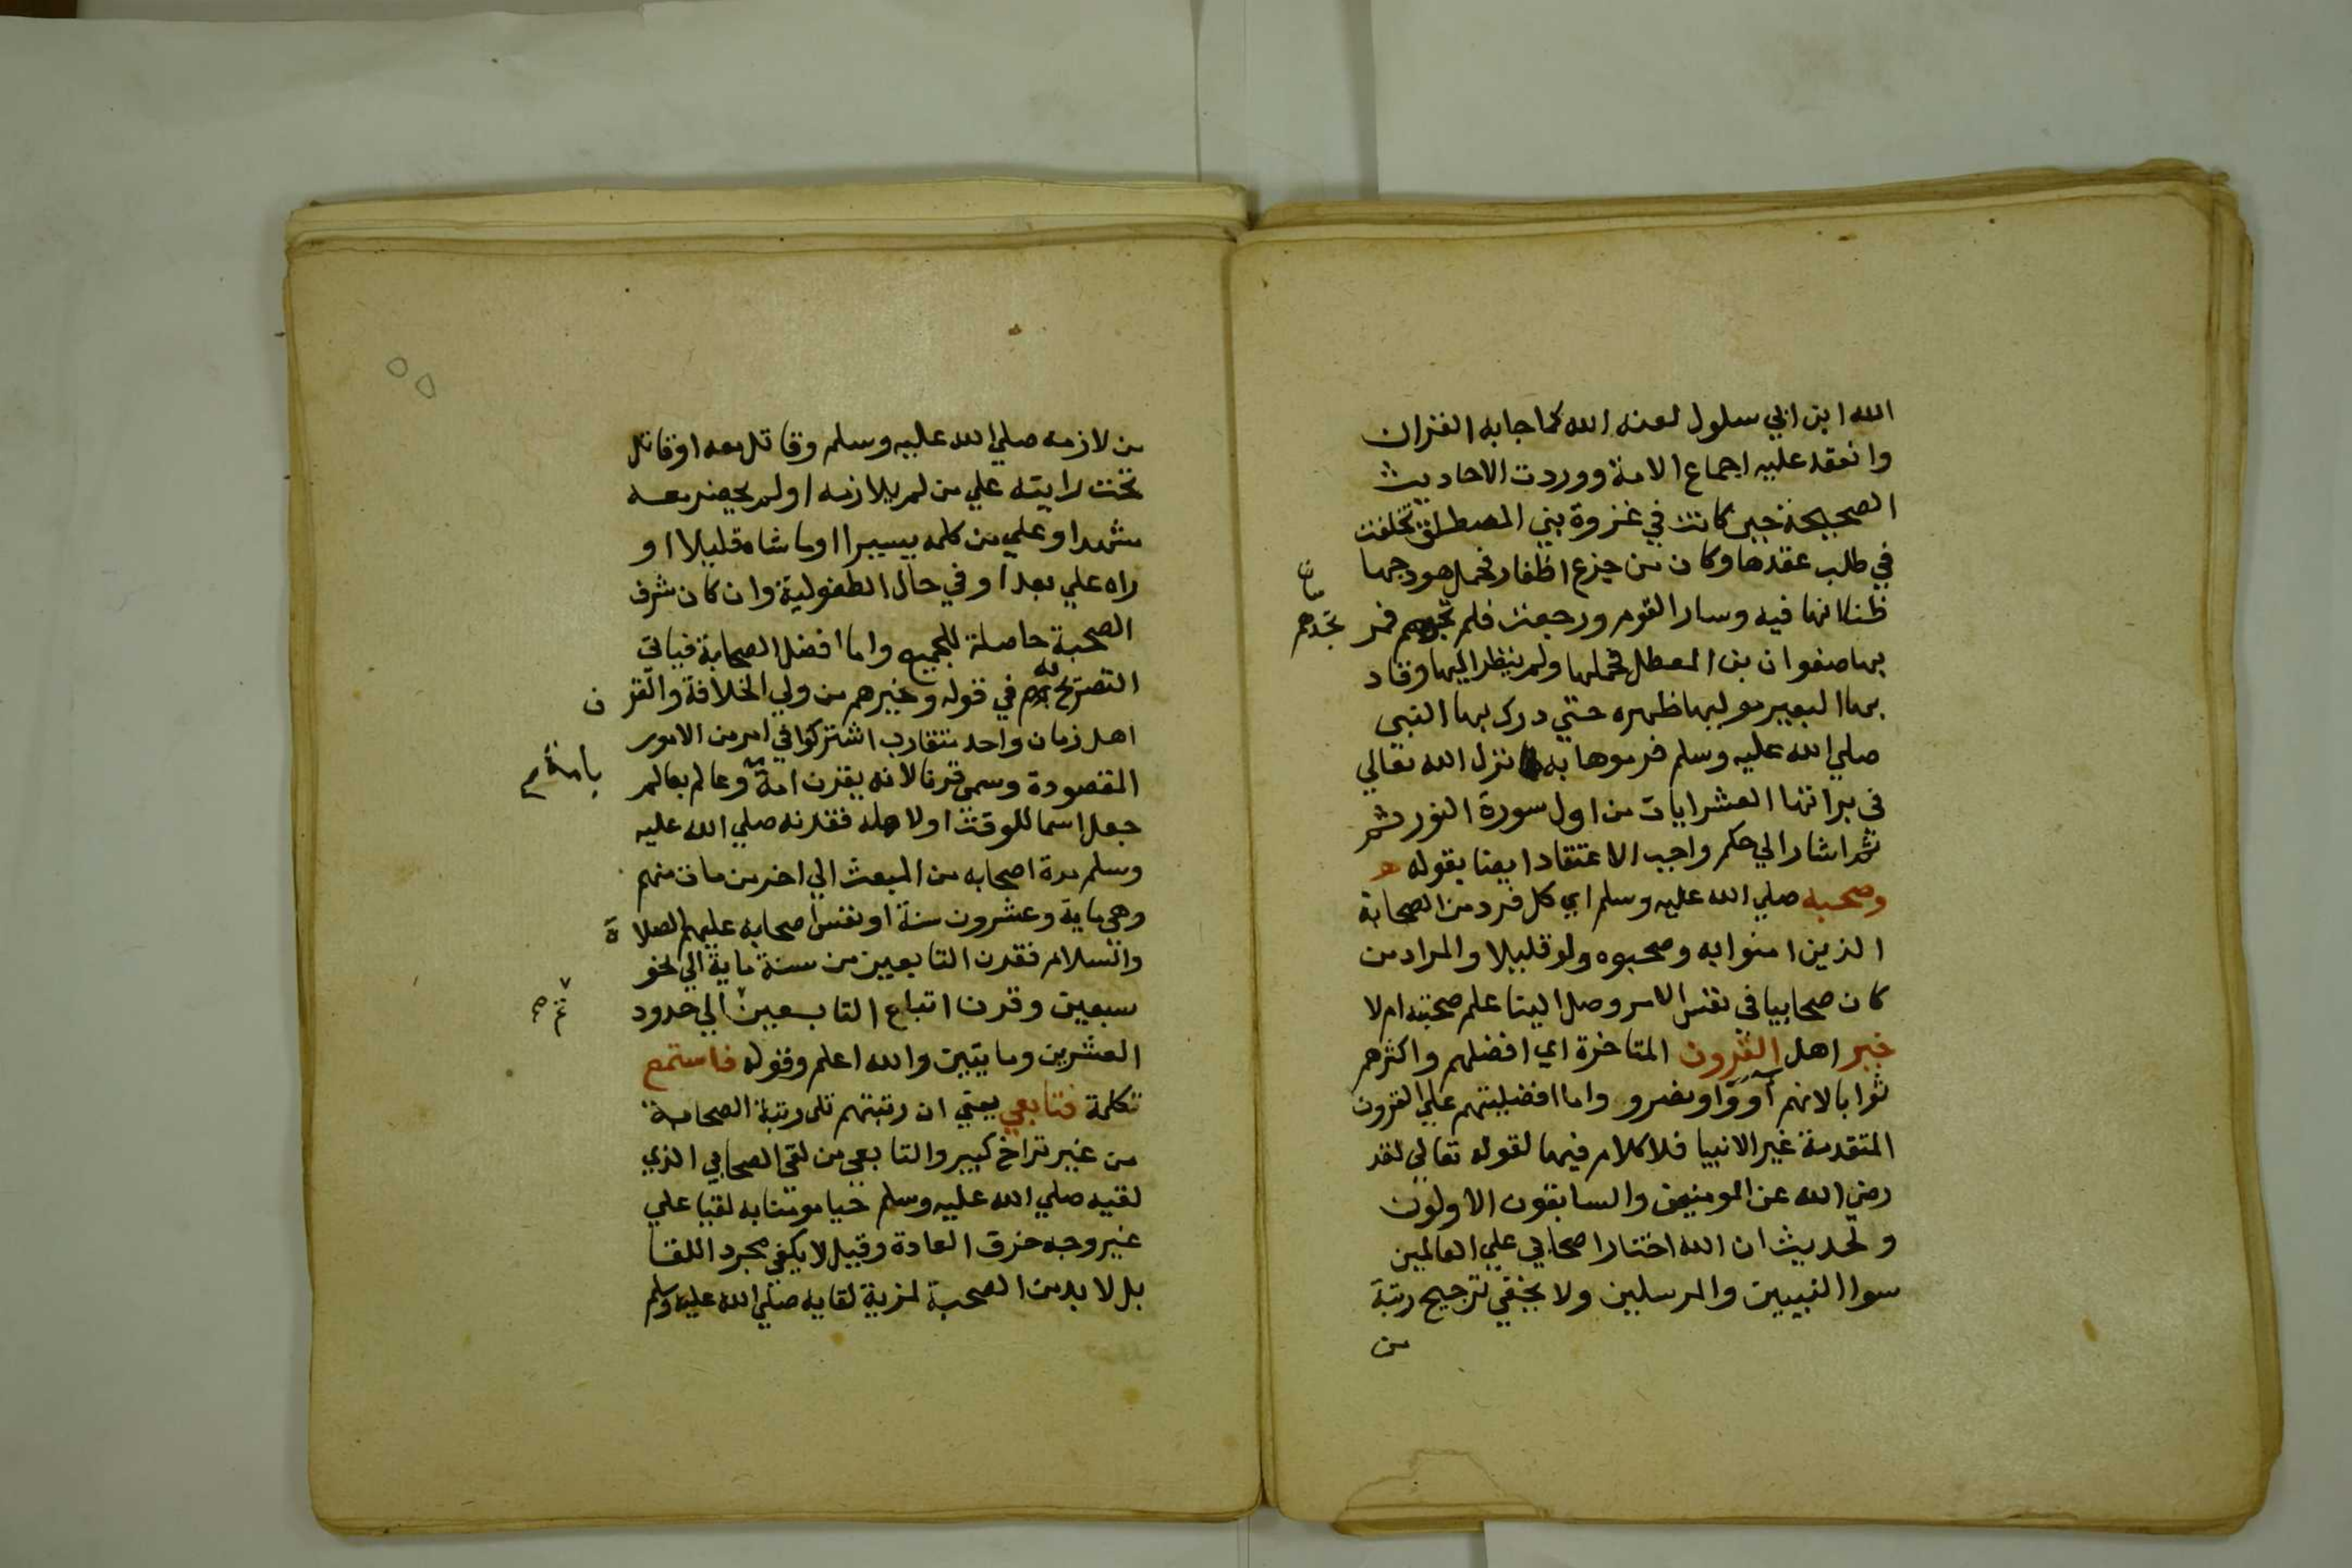 الله ابن ابي سلول لعنه الله كما جا به القران
وانعقد عليه اجماع الامة ووردت الاحاديث
الصحيحة حين كانت في غزوة بني المصطلق تخلفت
في طلب عقدها وكان من جزع اظفار فحمل هودجها
ظنا انها فيه وسار القوم ورجعت فلم فمر
تجدهم
بها صفوان بن المعطل فحملها ولم ينظر اليها وقاد
بها البعير موليها ظهره حتي درك بها النبي
صلي الله عليه وسلم فرموها به نزل الله تعالي
في براتها العشر ايات من اول سورة النور ثم
ثم اشار الي حكم واجب الاعتقاد ايضا بقوله
وصحبه صلي الله عليه وسلم اي كل فرد من الصحابة
الذين امنوا به وصحبوه ولو قليلا والمراد من
كان صحابيا في نفس الامر وصل الينا علم صحبته ام لا
خير اهل القرون المتاخرة اي افضلهم واكثرهم
ثوابا لانهم آووا ونصرو واما افضليتهم علي القرون
المتقدمة غير الانبيا فلا كلام فيها لقوله تعالي لقد
رضي الله عن المومنين والسابقون الاولون
ولحديث ان الله اختار اصحابي علي العالمين
سوا النبيين والمرسلين ولا يخفي ترجيح رتبة
من
من لازمه صلي الله عليه وسلم وقاتل معه او قاتل
تحت رايته علي من لم يلازمه او لم يحضر معه
مشهدا وعلي من كلمه يسيرا او ماشاه قليلا او
راه علي بعد او في حال الطفولية وان كان شرف
الصحبة حاصلة للجميع واما افضل الصحابة فياتي
التصريح به في قوله وخيرهم من ولي الخلافة والقرن
اهل زمان واحد متقارب اشتركوا في امر من الامور
المقصودة وسمي قرنا لانه يقرن امة وعالم بعالم
بامة
جعل اسما للوقت او لاهله فقرنه صلي الله عليه
وسلم مدة اصحابه من المبعث الي اخر من مات منهم
وهي ماية وعشرون سنة او نفس اصحابه عليهم الصلاة
والسلام فقرن التابعين من سنة ماية الي نحو
سبعين وقرن اتباع التابعين الي حدود
العشرين وما يتين والله اعلم وقوله فاستمع
تكلمة فتابعي يعني ان رتبتهم تلي رتبة الصحابة
من غير تراخ كبير والتابعي من لقي الصحابي الذي
لقيه صلي الله عليه وسلم حيا مومنا به لقيا علي
غير وجه خرق العادة وقيل لا يكفي مجرد اللقا
بل لا بد من الصحبة لمزية لقايه صلي الله عليه وسلم